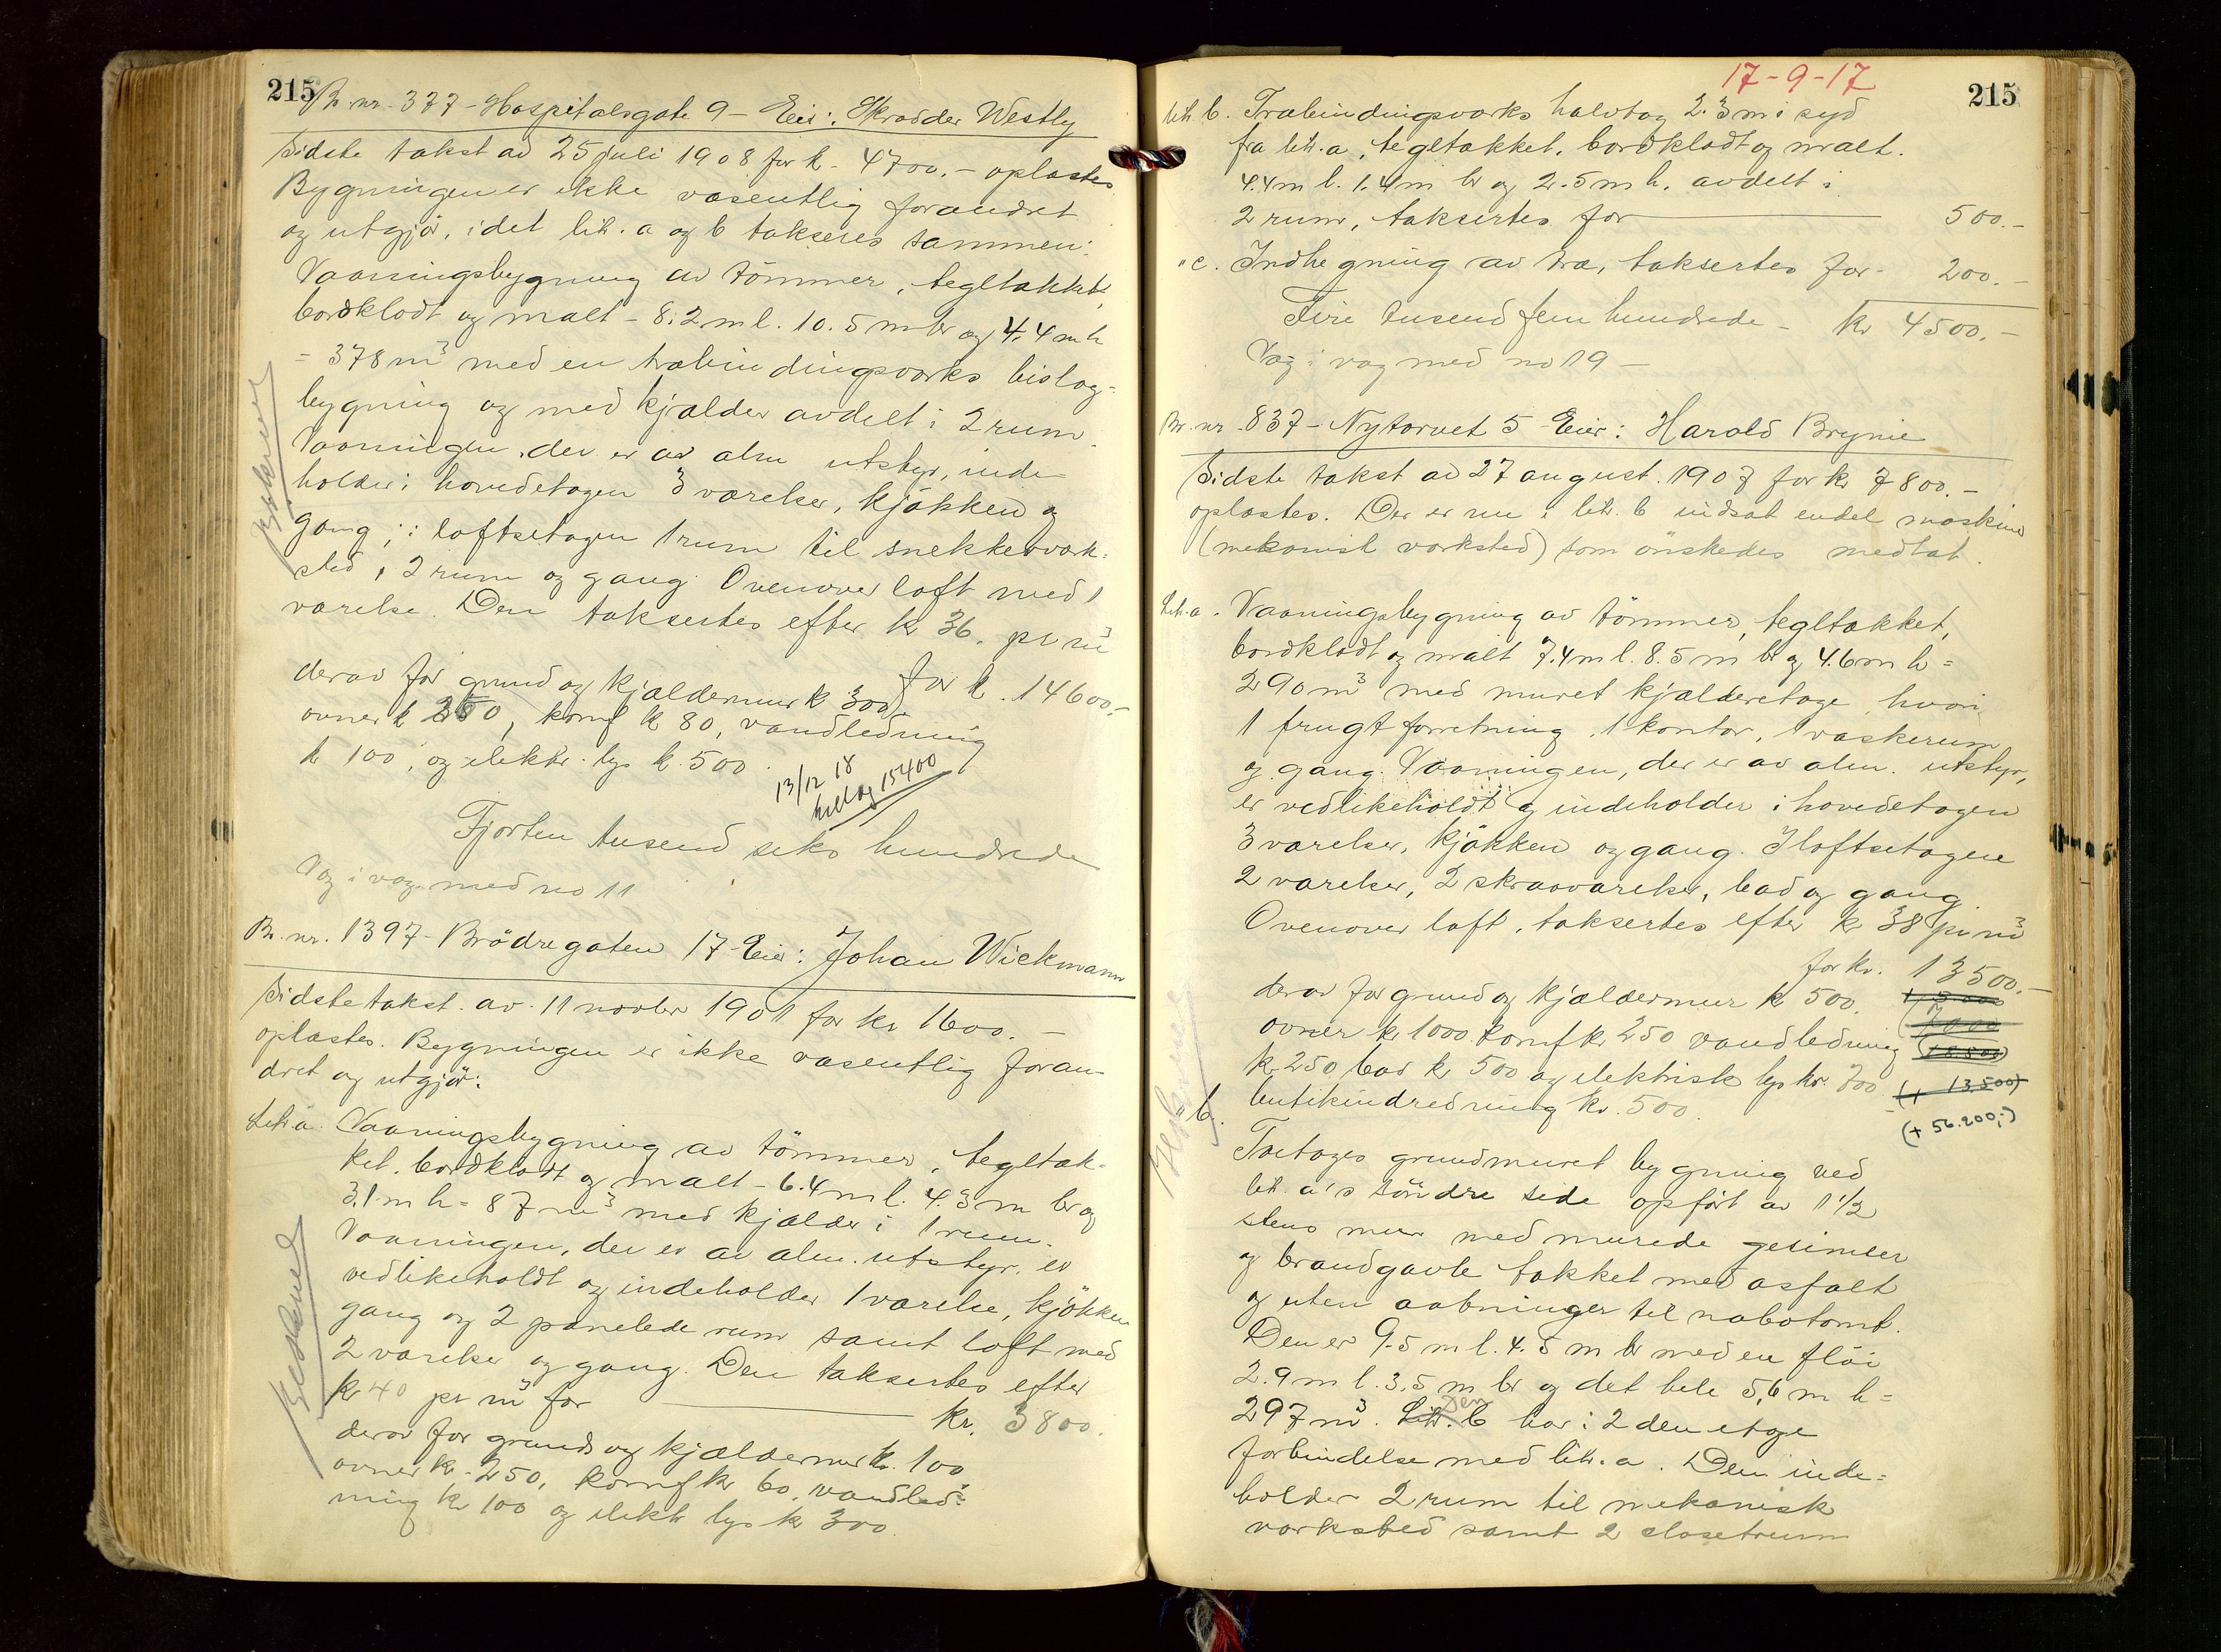 215
Br. nr. 377 - Hospitalsgate 9 - Eier: Skrædder Westly
Sidste takst av 25 juli 1908 for k. 4700.- oplæstes
Bygningen er ikke væsentlig forandret
og utgjør, idet litr. a og b takseres sammen:
Vaaningsbygning av tömmer, tegltækket,
bordklædt og malt - 8.2 m l. 10.5 m br og 4.4 m h
= 378 m³ med en træbindingsverks bislag-
bygning og med kjælder avdelt i 2 rum.
Vaaningen, der er av alm utstyr, inde-
holder i hovedetagen 3 værelser, kjökken og
gang; i loftsetagen 1 rum til snekkerverk-
sted, 2 rum og gang. Ovenover loft med 1
værelse. Den taksertes efter kr 36. pr m³
for k. 14600.-
derav for grund og kjældermur k 300,
ovner k 250, komf k 80, vandledning
k 100, og elektr. lys k. 500.
13/12 18
tillæg 15400
Fjorten tusend seks hundrede
Væg i væg med no 11
Br. nr. 1397 - Brödregaten 17 - Eier: Johan Wickmann
Sidste takst. av 11 novbr 1901 for kr 1600.-
oplæstes. Bygningen er ikke væsentlig foran-
dret og utgjör:
Litr. a. Vaaningsbygning av tömmer, tegltæk-
ket, bordklædt og malt - 6.4 m l. 4.3 m br og
3.1 m h = 87 m³ med kjælder i 1 rum.
Vaaningen, der er av alm. utstyr, er
vedlikeholdt og indeholder 1 værelse, kjökken
gang og 2 panelede rum samt loft med
2 værelser og gang. Den taksertes efter
kr 40 pr m³ for kr. 3800.
derav for grund og kjældermur kr. 100
ovner kr. 250, komf kr 60, vandled-
ning kr 100 og elektr lys kr 300.
17-9-17
215
litr. b. Træbindingsverks halvtag 2.3 m i syd
fra litr. a, tegltækket, bordklædt og malt.
4.4 m l. 1.4 m br og 2.5 m h. avdelt i
2 rum, taksertes for 500.-
" c. Indhegning av træ, taksertes for - 200.-
Fire tusend fem hundrede - kr 4500.-
Væg i væg med no 19 -
Br. nr. 837 - Nytorvet 5 Eier: Harald Brynie
Sidste takst av 27 august 1907 for kr 7800.-
oplæstes. Der er nu i litr. b indsat endel maskiner
(mekanisk verksted) som önskedes medtat.
Litr. a. Vaaningsbygning av tömmer, tegltækket,
bordklædt og malt 7.4 m l. 8.5 m br og 4.6 m h =
290 m³ med muret kjælderetage hvori
1 frugtforretning, 1 kontor, 1 vaskerum
og gang. Vaaningen, der er av alm. utstyr,
er vedlikeholdt og indeholder i hovedetagen
3 værelser, kjökken og gang. I loftsetagen
2 værelser, 2 skraaværelser, bad og gang.
Ovenover loft, taksertes efter kr 38 pr m³
for kr. 13500.-
derav for grund og kjældermur kr 500.
ovner kr 1000. komf kr 250 vandledning
kr 250 bad kr 500 og elektrisk lys kr. 700
(+ 13.500)
butikindredning kr. 500.
(+ 56.200,-)
" b.
Toetages grundmuret bygning ved
litr. a's söndre side opfört av 1 1/2
stens mur med murede gesimser
og brandgavle tækket med asfalt
og uten aabninger til nabotomt.
Den er 9.5 m l. 4.5 m br med en flöi
2.9 m l. 3.5 m br og det hele 5,6 m h =
297 m³. Litr. b Den har i 2den etage
forbindelse med litr. a. Den inde-
holder 2 rum til mekanisk
verksted samt 2 closetrum